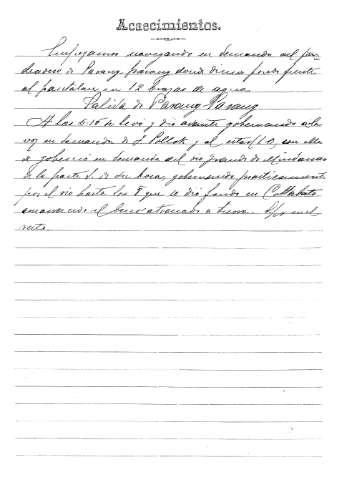 Acaecimientos.
Empezamos navegando en demanda del fon
deadero de Parang parang donde dimos fondo frente
al pantalan en 12 brazas de agua
Salida de Parang Parang
A las 6.15 de levo y dio avante gobernando a la
voz en demanda de P. Pollok y al estar con ella
se gobernó en demanda del rio grande de Mindanao
de la parte S. de su boca, gobernando practicamente
por el rio hasta las 8 que se dio fondo en Cottabato
amarrando el buque atracado a tierra